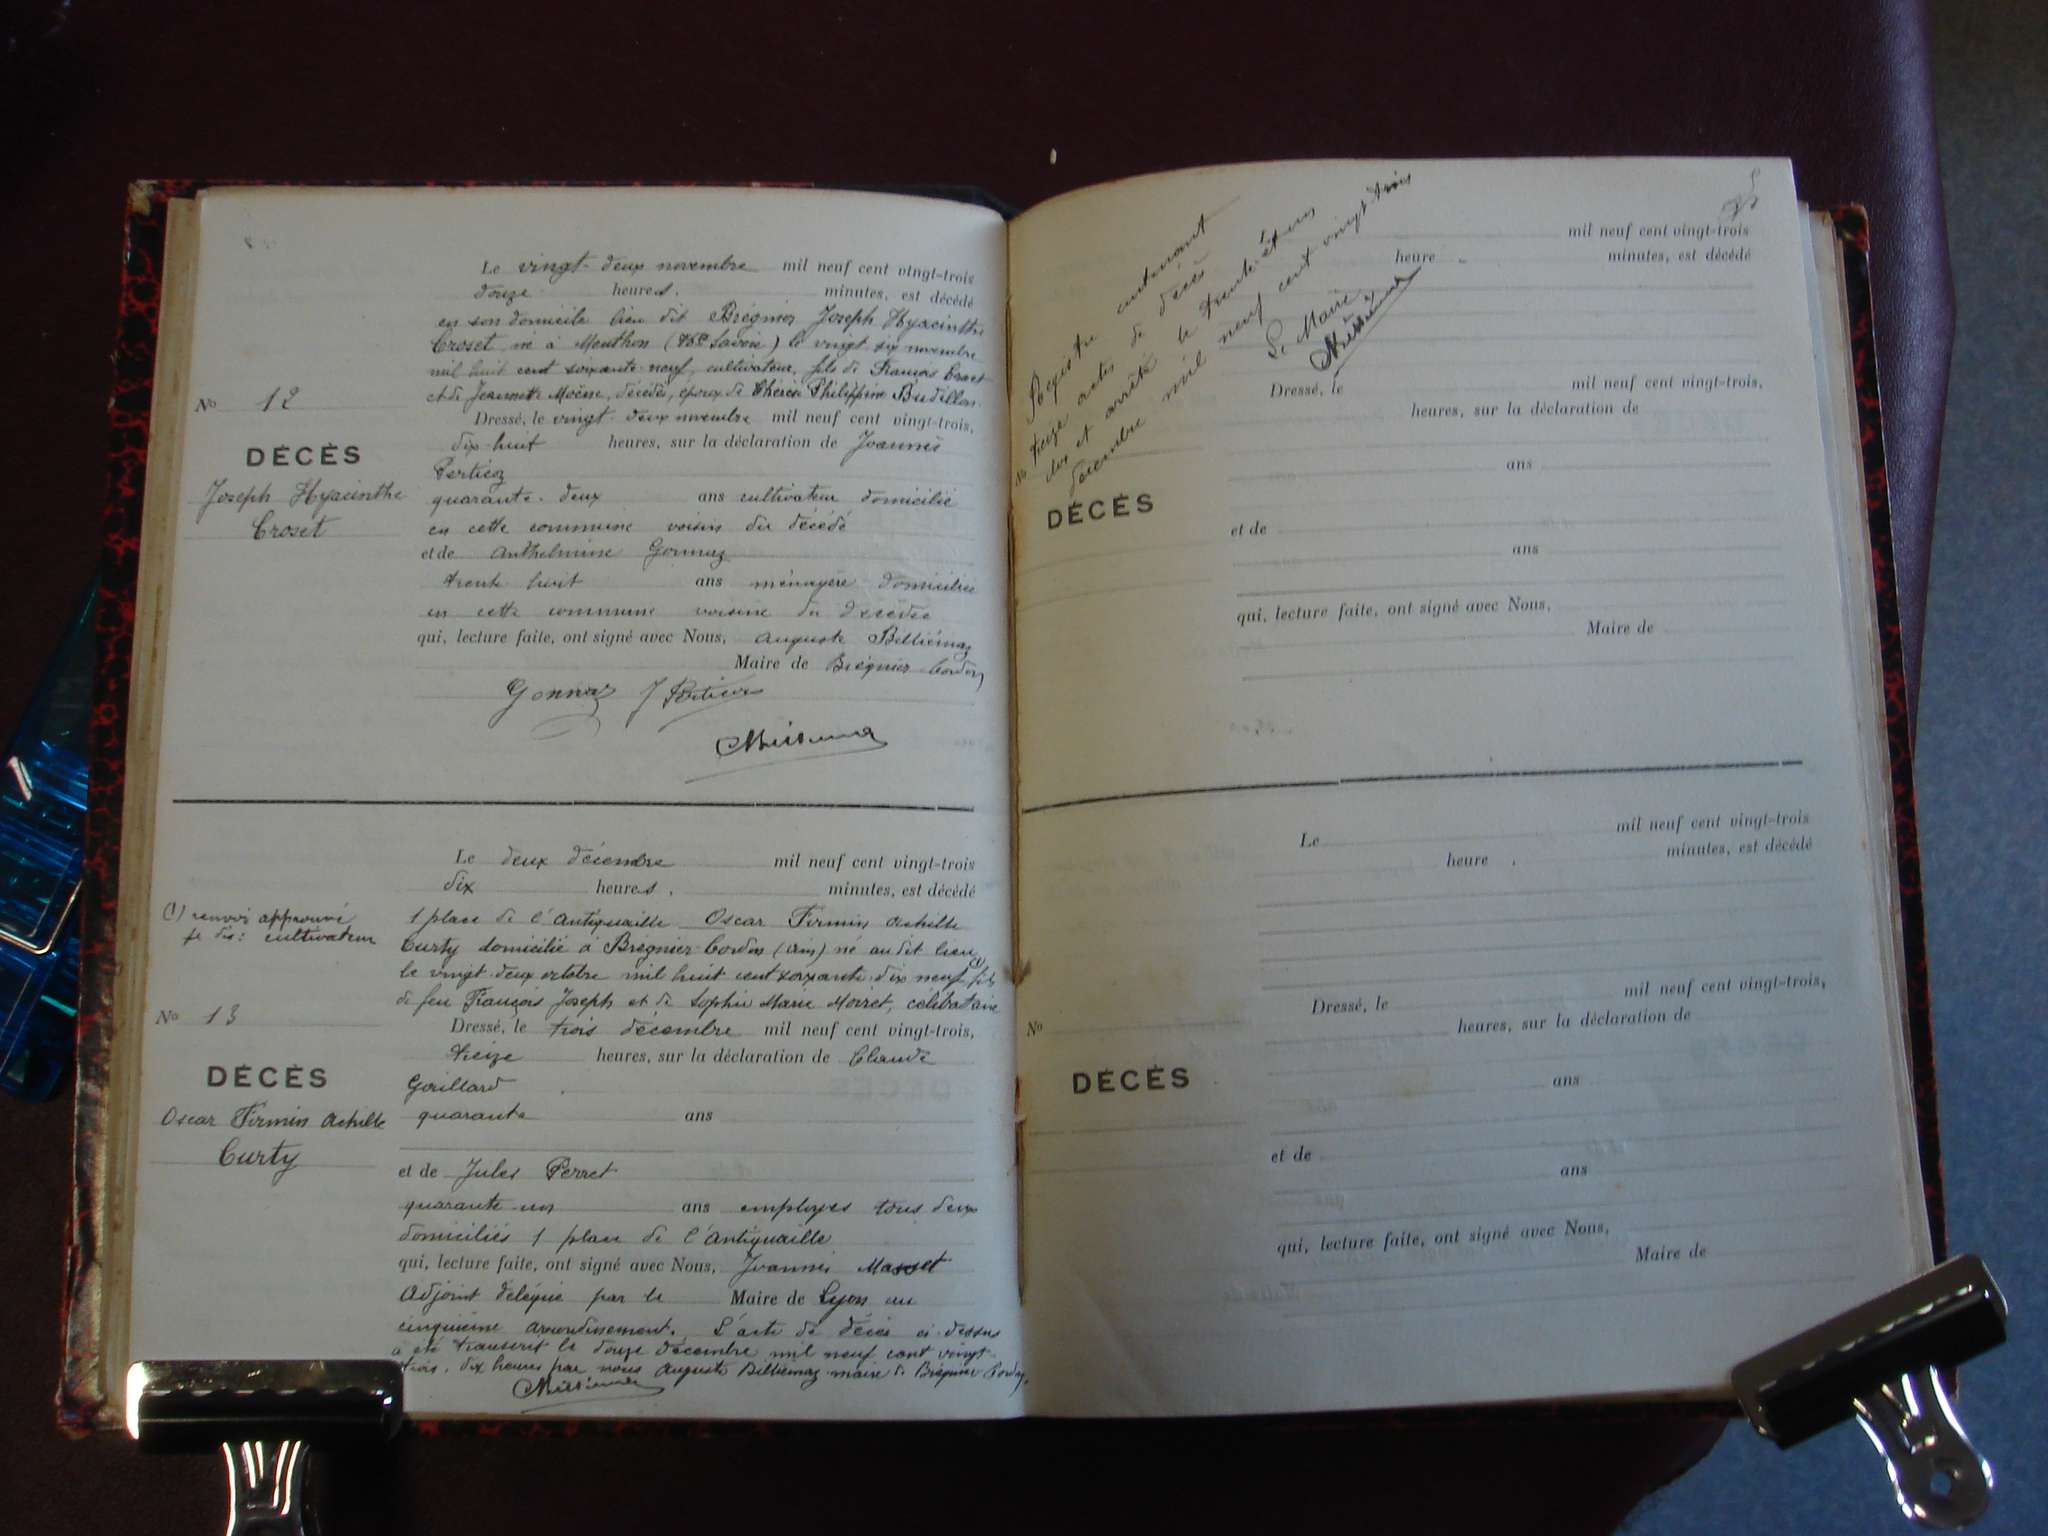 Le vingt-deux novembre mil neuf cent vingt-trois
douze heures. minutes, est décédé
en son domicile lieu dit Brégnier Joseph Hyacinthe
Croset né à Menthon (Hte Savoie) le vingt six novembre
mil huit cent soixante neuf, cultivateur, fils de François Croset
et de Jeannette décédés, époux de Thérèse Philippine Budillon.
No 12
Dressé, le vingt-deux novembre mil neuf cent vingt-trois,
dix-huit heures, sur la déclaration de Joannès
DÉCÈS
Pertiez
Joseph Hyacinthe
Croset
quarante-deux ans cultivateur domicilié
en cette commune voisin du décédé
et de Anthelmine Gonnaz
trente huit ans ménagère domiciliée
en cette commune voisine du décédé
qui, lecture faite, ont signé avec Nous, Auguste Billiémaz
Maire de Brégnier-Cordon
Gonnaz
Le deux décembre mil neuf cent vingt-trois
dix heures. minutes, est décédé
(1) renvoi approuvé
je dis: cultivateur
1 place de l'Antiquaille Oscar Firmin Achille
Curty domicilié à Brégnier-Cordon (Ain) né au dit lieu
le vingt-deux octobre mil huit cent soixante-dix neuf (1) fils
de feu François Joseph et de Sophie Marie Morret, célibataire
No 13
Dressé, le trois décembre mil neuf cent vingt-trois,
treize heures, sur la déclaration de Claude
DÉCÈS
Oscar Firmin Achille
Curty
Gouillard
quarante ans
et de Jules Perret
quarante-un ans employés tous deux
domiciliés 1 place de l'Antiquaille
qui, lecture faite, ont signé avec Nous, Joannès Masset
Adjoint délégué par le Maire de Lyon au
cinquième arrondissement. L'acte de décès ci-dessus
a été transcrit le douze décembre mil neuf cent vingt-
trois, dix heures par nous Auguste Billiémaz maire de Brégnier Cordon.
Registre contenant
treize actes de décès
clos et arrêté le trente et un
décembre mil neuf cent vingt trois
Le Maire
mil neuf cent vingt-trois
heure minutes, est décédé
Dressé, le mil neuf cent vingt-trois,
heures, sur la déclaration de
ans
DÉCÈS
et de
ans
qui, lecture faite, ont signé avec Nous,
Maire de
Le mil neuf cent vingt-trois
heure . minutes, est décédé
No
Dressé, le mil neuf cent vingt-trois,
heures, sur la déclaration de
DÉCÈS
ans
et de
ans
qui, lecture faite, ont signé avec Nous,
Maire de